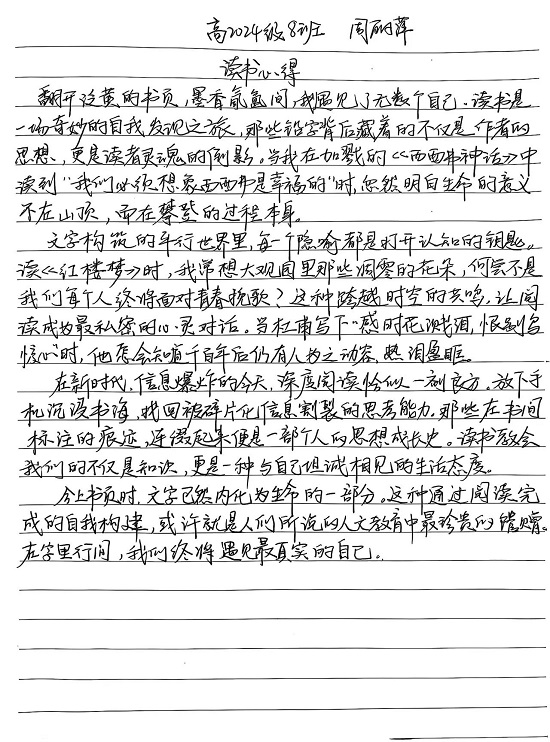 高2024级8班 周丽萍
读书心得
翻开泛黄的书页，墨香氤氲间，我遇见了无数个自己。读书是
一场奇妙的自我发现之旅，那些铅字背后藏着的不仅是作者的
思想，更是读者灵魂的倒影。当我在加缪的《西西弗神话》中
读到"我们必须想象西西弗是幸福的"时，忽然明白生命的意义
不在山顶，而在攀登的过程本身。
文字构筑的平行世界里，每一个隐喻都是打开认知的钥匙。
读《红楼梦》时，我常想大观园里那些凋零的花朵，何尝不是
我们每个人终将面对青春挽歌？这种跨越时空的共鸣，让阅
读成为最私密的心灵对话。当杜甫写下"感时花溅泪，恨别鸟
惊心"时，他怎会知道千百年后仍有人为之动容，热泪盈眶。
在新时代，信息爆炸的今天，深度阅读恰似一剂良方。放下手
机沉浸书海，找回被碎片化信息割裂的思考能力。那些在书间
标注的痕迹，连缀起来便是一部个人的思想成长史。读书教会
我们的不仅是知识，更是一种与自己坦诚相见的生活态度。
合上书页时，文字已然内化为生命的一部分。这种通过阅读完
成的自我构建，或许就是人们所说的人文教育中最珍贵的馈赠。
在字里行间，我们终将遇见最真实的自己。